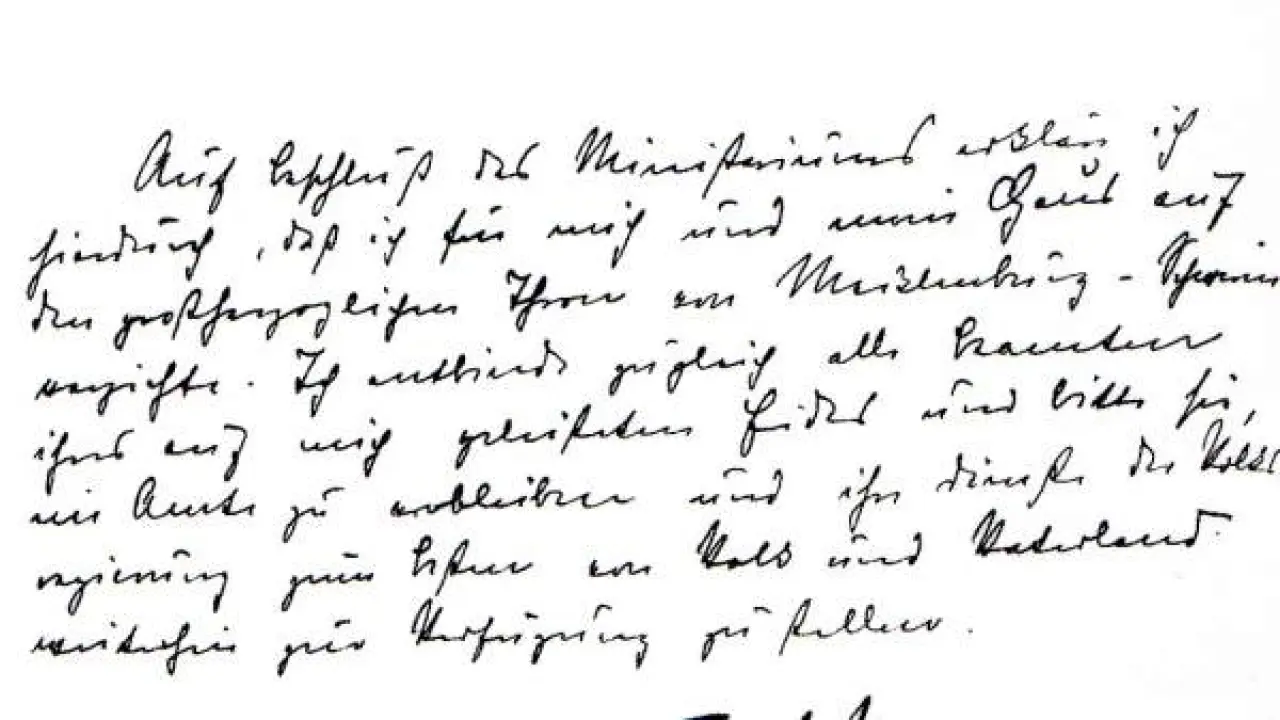 Auf Beschluß des Ministeriums erkläre ich
hierdurch, daß ich für mich und mein Haus auf
den großherzoglichen Thron von Mecklenburg-Schwerin
verzichte. Ich entbinde zugleich alle Beamten
ihres auf mich geleisteten Eides und bitte sie,
im Amte zu verbleiben und ihre Dienste der Volks
regierung zum Besten von Volk und Vaterland
weiterhin zur Verfügung zu stellen.